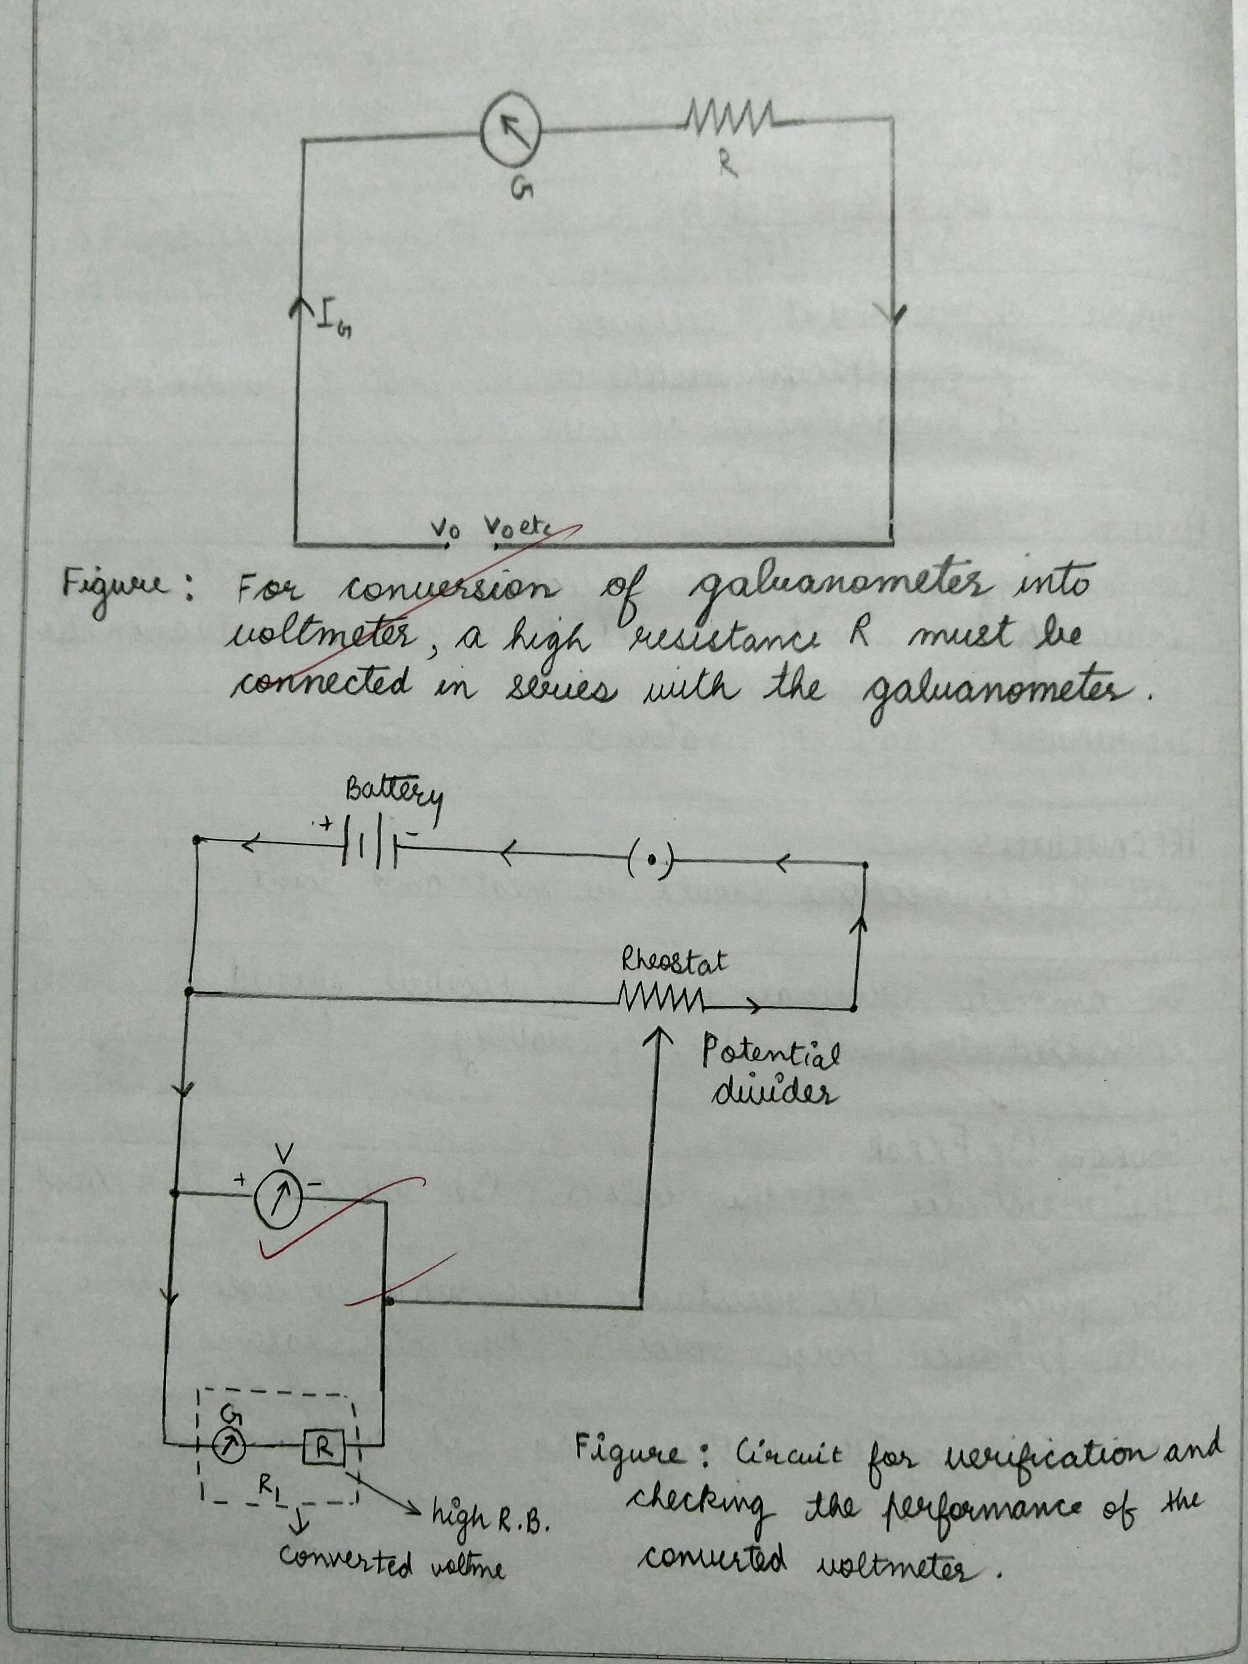 G
R
I_G
V0 V0 etc
Figure: For conversion of galvanometer into
voltmeter, a high resistance R must be
connected in series with the galvanometer.
Battery
+ -
(•)
Rheostat
Potential
divider
V
+ -
G
R
R1
high R.B.
converted voltme
Figure: Circuit for verification and
checking the performance of the
converted voltmeter.